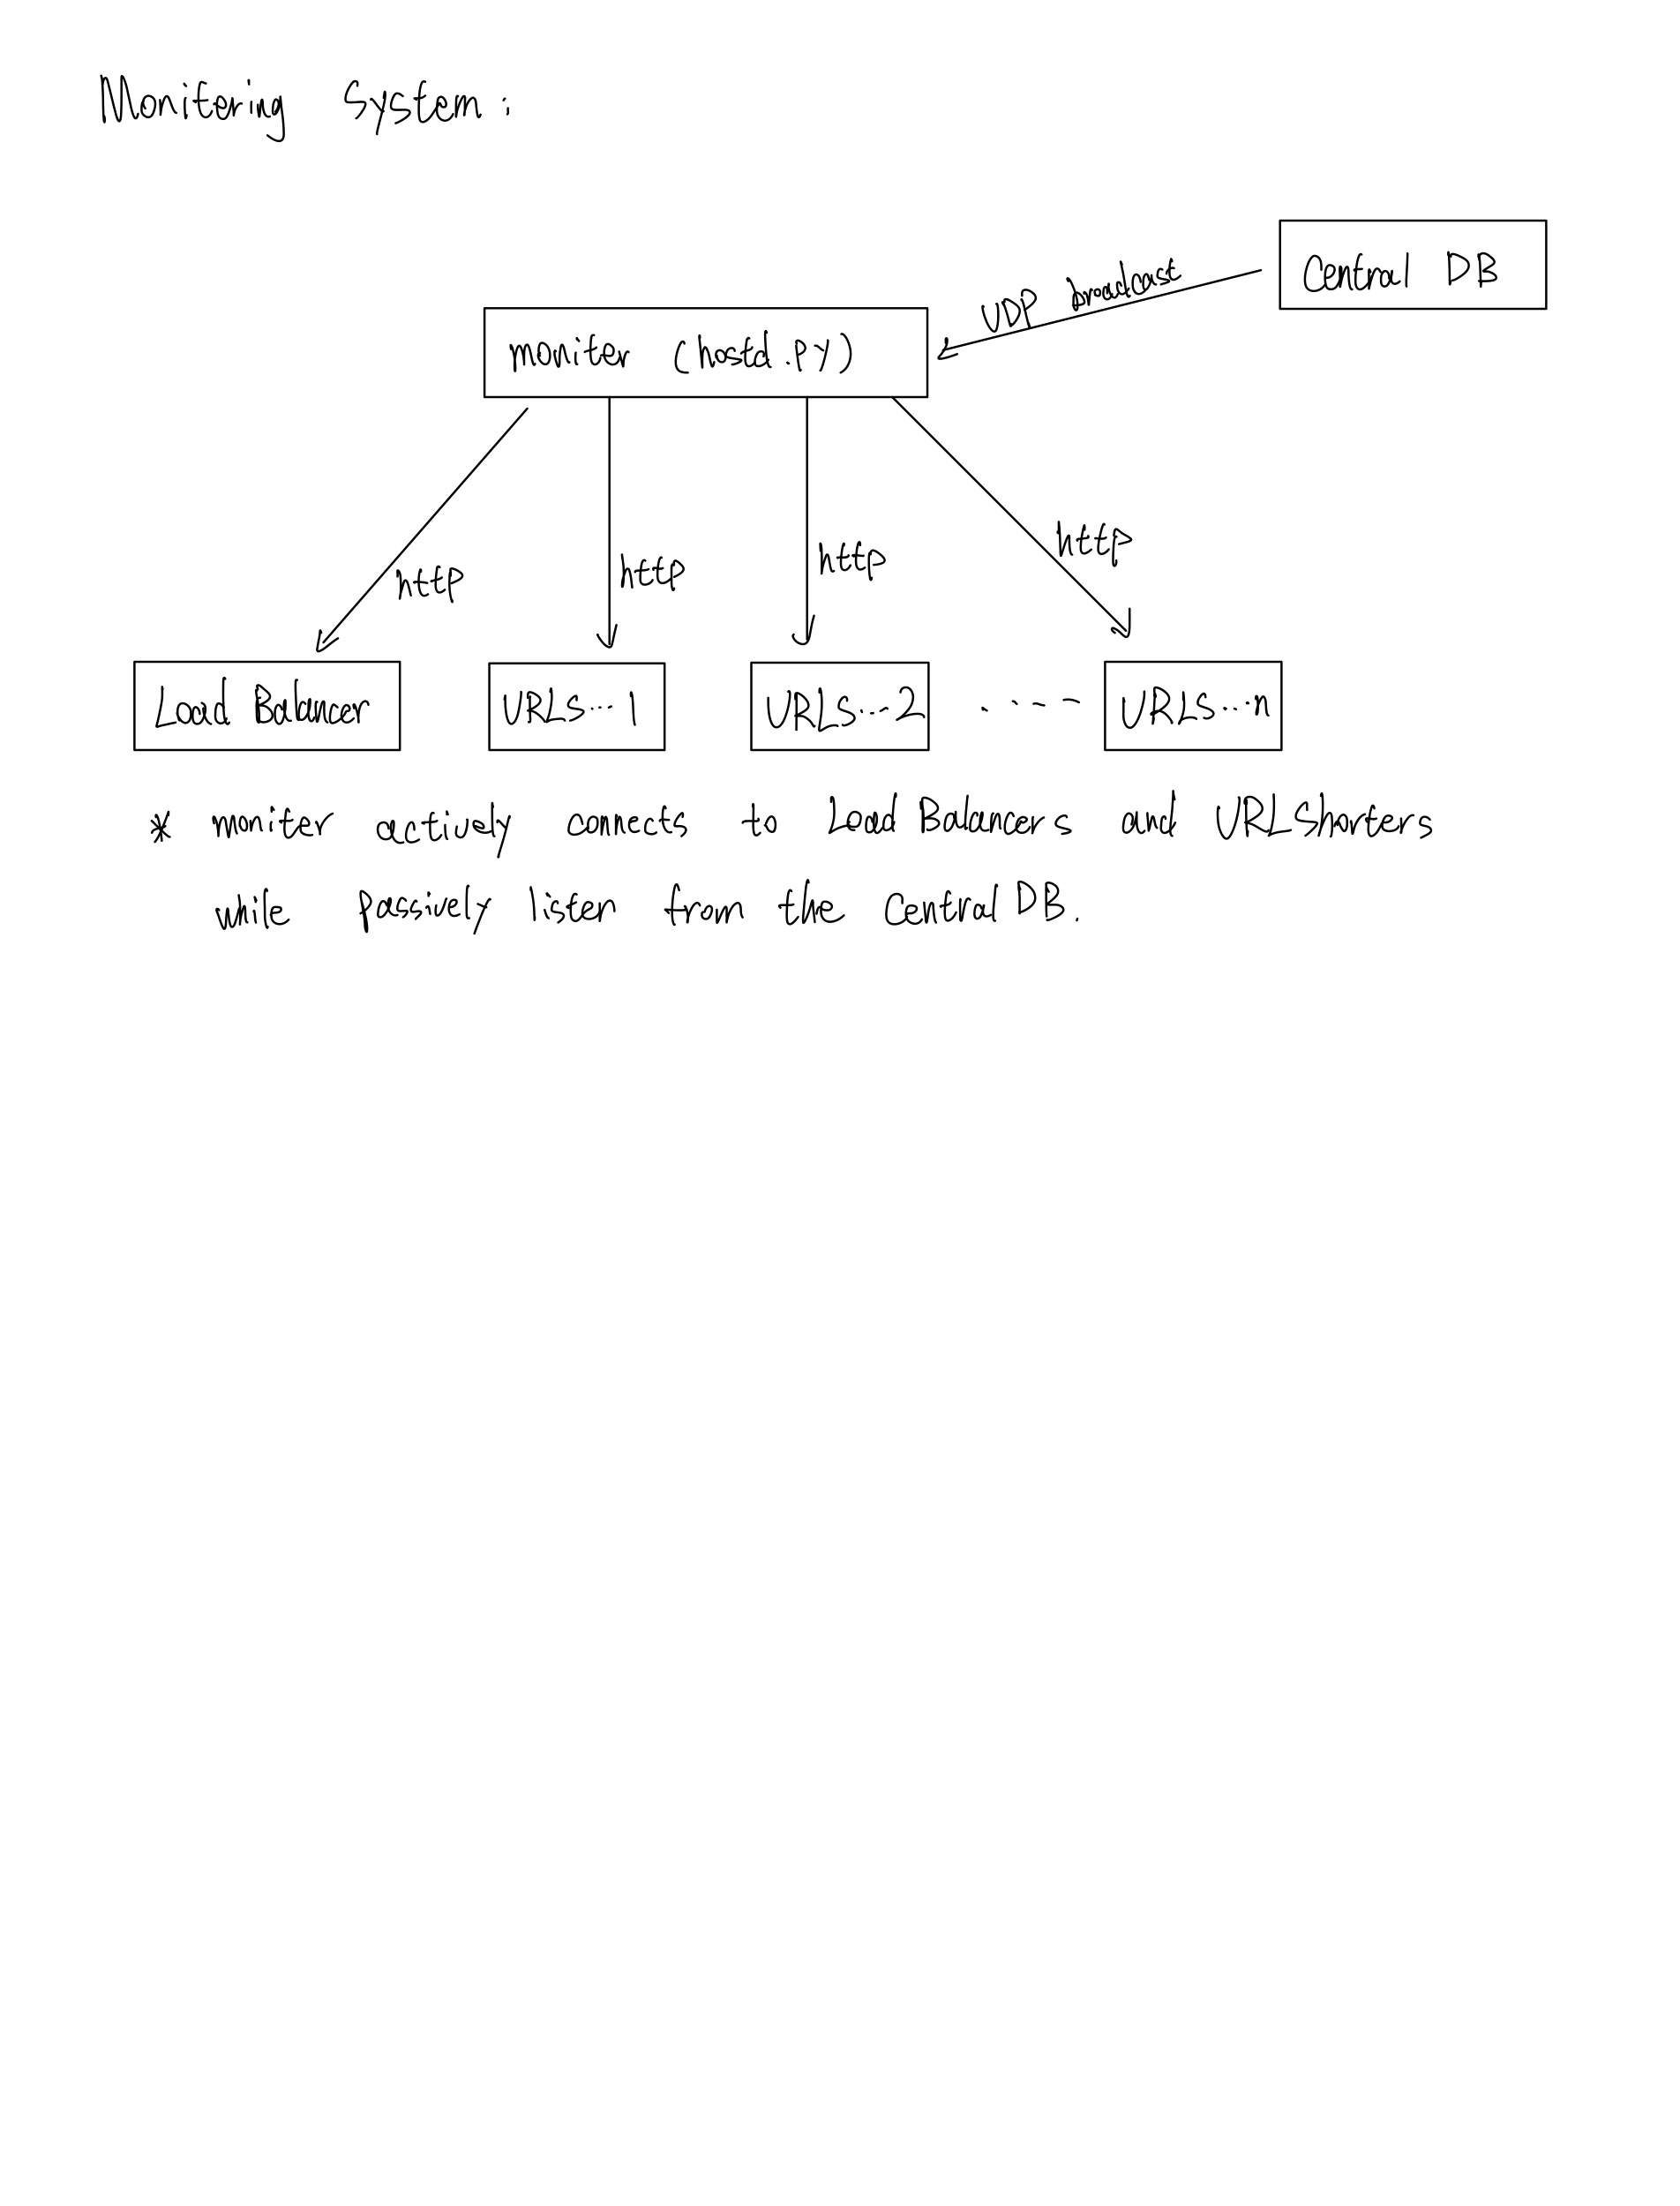 Monitering System:
Central DB
UDP broadcast
moniter (hostd.py)
http
http
http
http
Load Balancer
URLS...1
URLS...2
....
URLS...n
* moniter actively connects to Load Balancers and URLShorters
while passively listen from the Central DB.